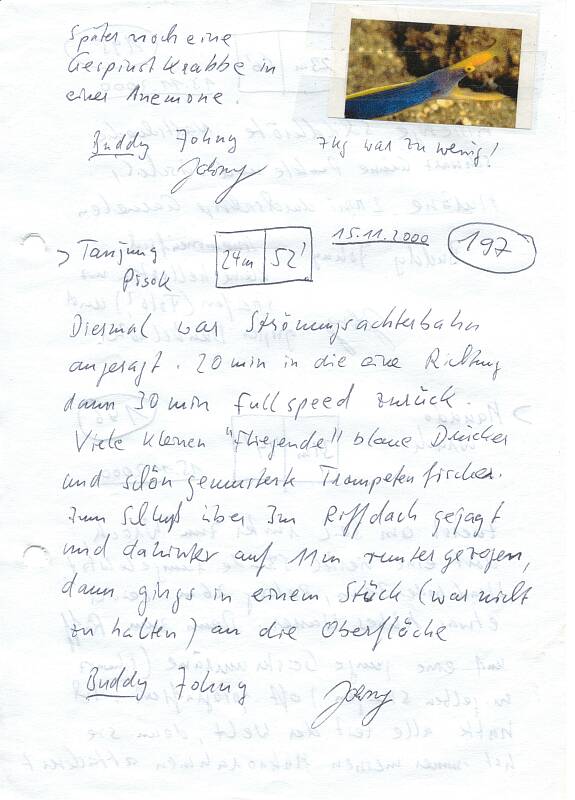 Später noch eine
Gespinstkrabbe in
einer Anemone.
Buddy Johny 7kg war zu wenig!
Johny
> Tanjung Pisok 24m 52' 15.11.2000 197
Diesmal war Strömungsachterbahn
angesagt. 20 min in die eine Richtung
dann 30 min full speed zurück.
Viele kleinen "fliegende" blaue Drücker
und schön gemusterte Trompetenfische.
Zum Schluß über 3m Riffdach gejagt
und dahinter auf 11m runter gezogen,
dann gings in einem Stück (war nicht
zu halten) an die Oberfläche
Buddy Johny Johny